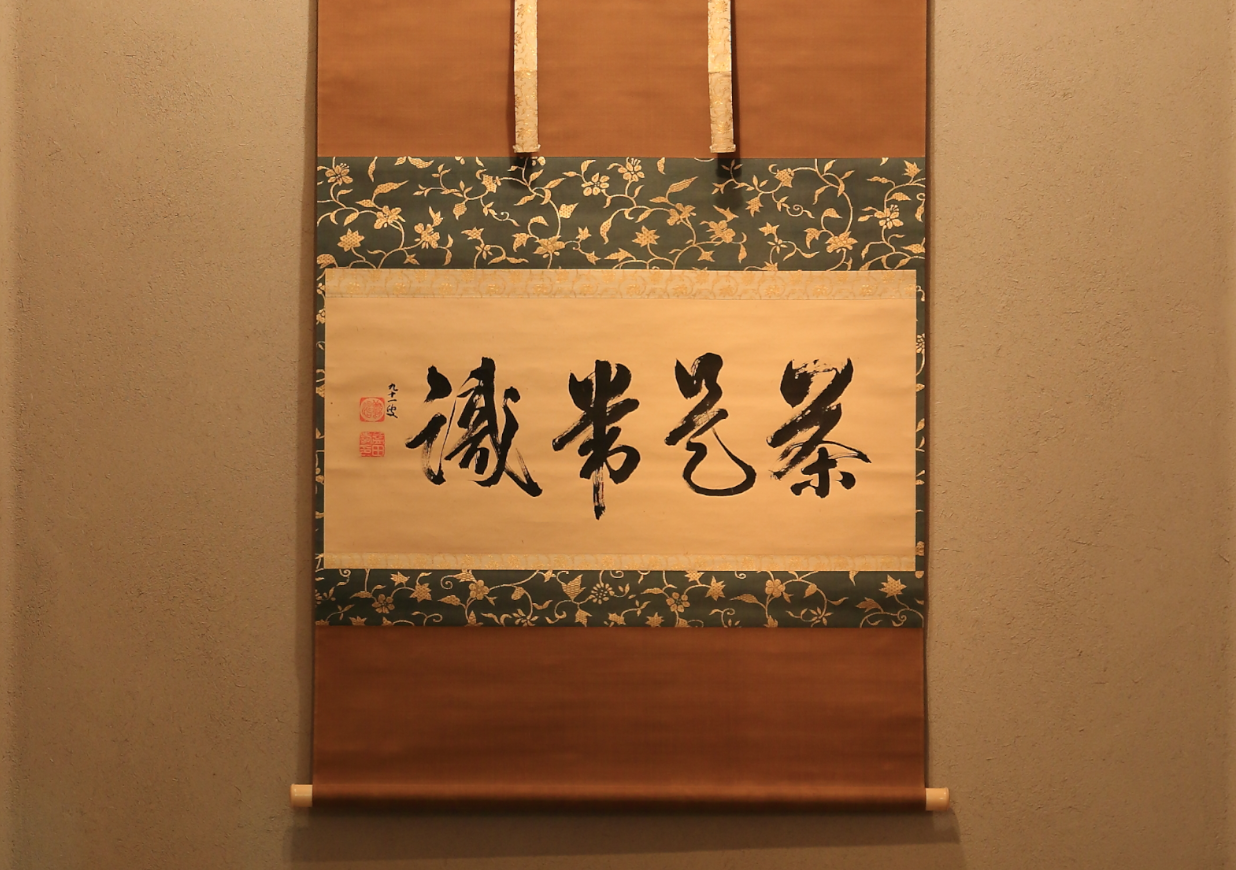 茶是常識
九十一叟